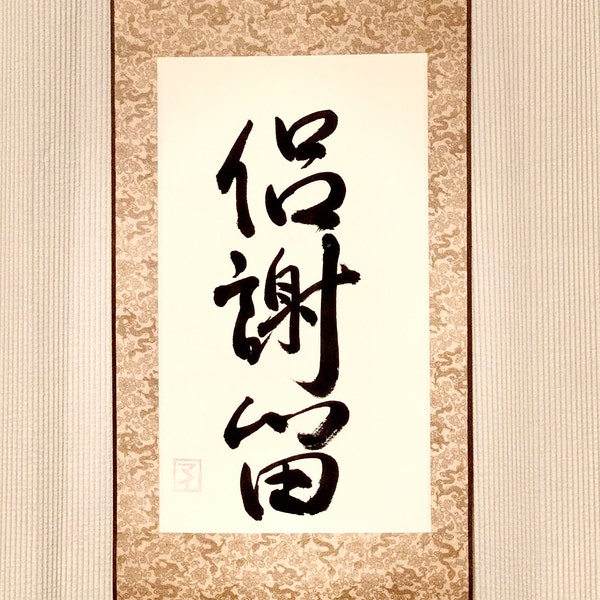 侶謝留